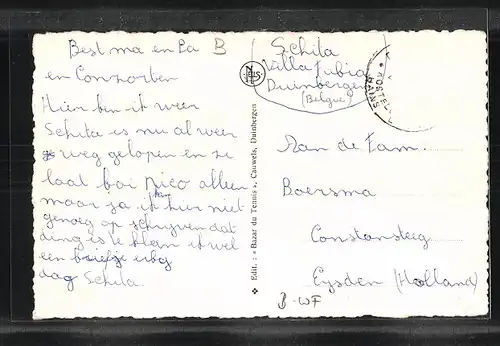 Best ma en Pa B
en Consorten
Hier ben ik weer
Schila is nu al weer
weg gelopen en ze
laat boi Nico alleen
maar ja ik kan hier niet
genoeg op schrijven dat
ding is te klein ik wel
een briefje erbij
dag Schila.
Edit. : « Bazar du Tennis », Cauwels, Duinbergen
Schila
Villa Jubia
Duinbergen
(Belgie)
Aan de Fam.
Boersma
Constansteeg
Eysden (Holland)
B-WF